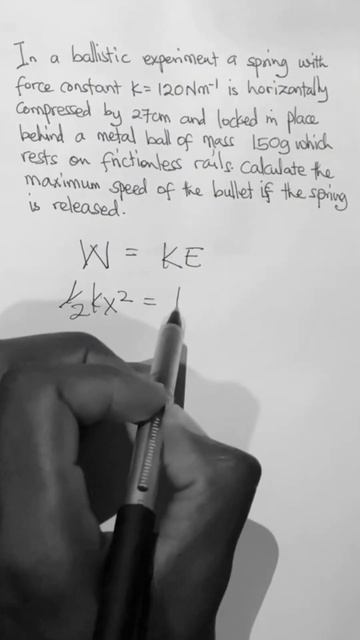 In a ballistic experiment a spring with
force constant K= 120Nm⁻¹ is horizontally
compressed by 27cm and locked in place
behind a metal ball of mass 150g which
rests on frictionless rails. Calculate the
maximum speed of the bullet if the spring
is released.
W = KE
½kx² = 1